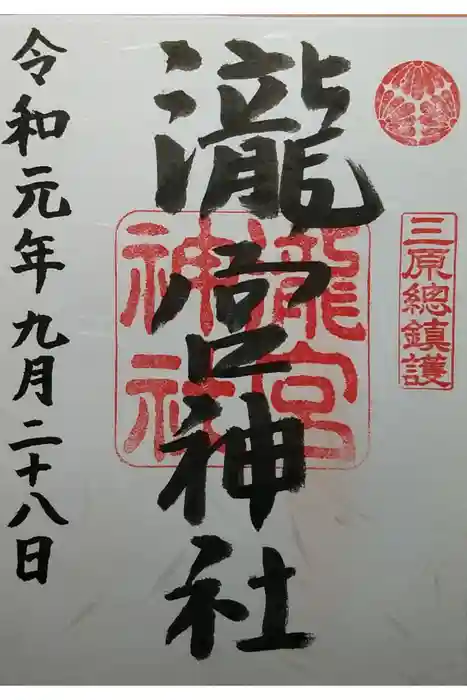 三原總鎮護
瀧宮神社
瀧宮神社
令和元年九月二十八日